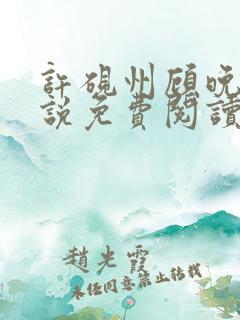 許硯州顧晚
說免費閱讀
趙光霞
未經同意禁止轉載